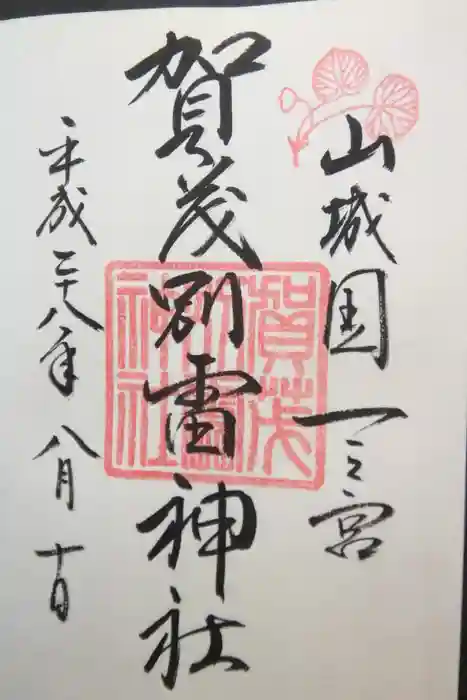 山城国一之宮
賀茂別雷神社
賀茂別雷神社
平成二十八年八月十日